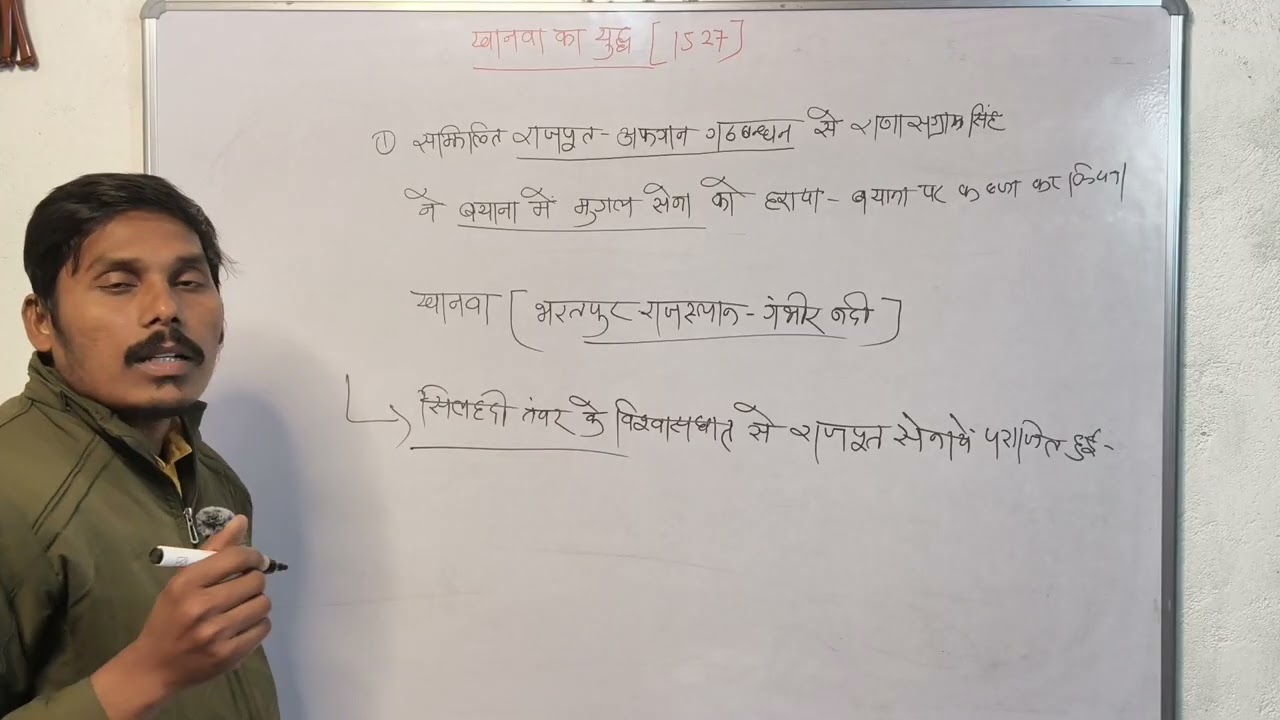 खानवा का युद्ध [1527]
① सम्मिलित राजपूत-अफगान गठबन्धन से राणा संग्राम सिंह
ने बयाना में मुगल सेना को हराया - बयाना पर कब्जा कर लिया
खानवा [भरतपुर-राजस्थान-गंभीर नदी]
सिलहदी तंवर के विश्वासघात से राजपूत सेनायें पराजित हुई-